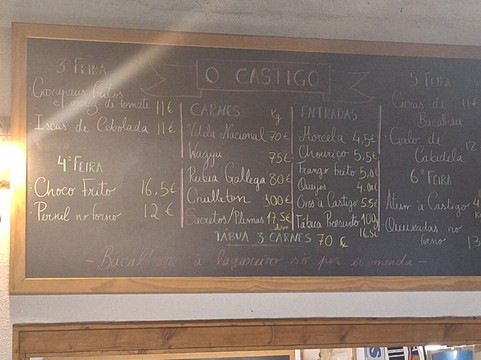 O CASTIGO
3ª FEIRA
Carapaus fritos
c/ arroz de tomate 11€
Iscas de Cebolada 11€
4ª FEIRA
· Choco Frito 16,5€
· Pernil no forno 12€
CARNES Kg
Vitela Nacional 70€
Wagyu 75€
Rubia Gallega 80€
Chulleton 100€
Secretos/Plumas 17,5€
ENTRADAS
Morcela 4,5€
Chouriço 5,5€
Frango frito 5,0€
Queijos 4,00€
Ovos à Castigo 5,5€
Tábua Presunto 100g
16,5€
TÁBUA 3 CARNES 70€
5ª FEIRA
· Caras de 11€
Bacalhau
· Galo de
Cabidela 12
6ª FEIRA
· Atum à Castigo
· Queixadas no
forno 13
- Bacalhau à lagareiro só por encomenda -